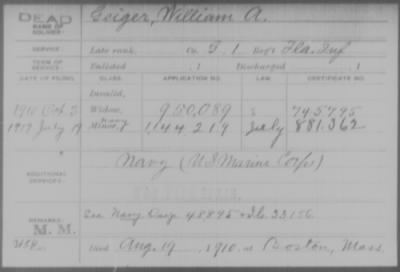 DEAD
NAME OF SOLDIER: Geiger, William A.
SERVICE: Late rank, Co. F. 1 Reg't Fla. Inf
TERM OF SERVICE: Enlisted , 1 Discharged , 1
DATE OF FILING. CLASS. APPLICATION NO. LAW. CERTIFICATE NO.
Invalid,
1910 Oct. 3 Widow, 950,089 745,795
1919 July 19 Navy Minor, 1,144,219 July 881,362
Navy (U.S. Marine Corps)
ADDITIONAL SERVICES:
REMARKS: See Navy
M. M.
Died Aug. 19, 1910, at Boston, Mass.